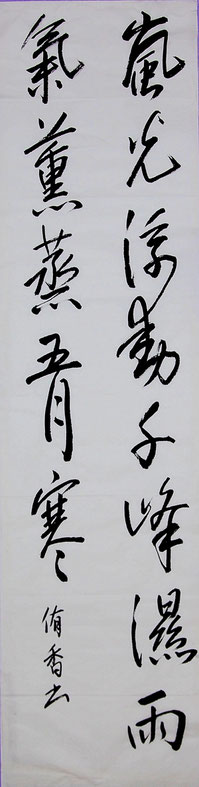 嵐光浮動千峰濕雨
氣薰蒸五月寒
侑香書